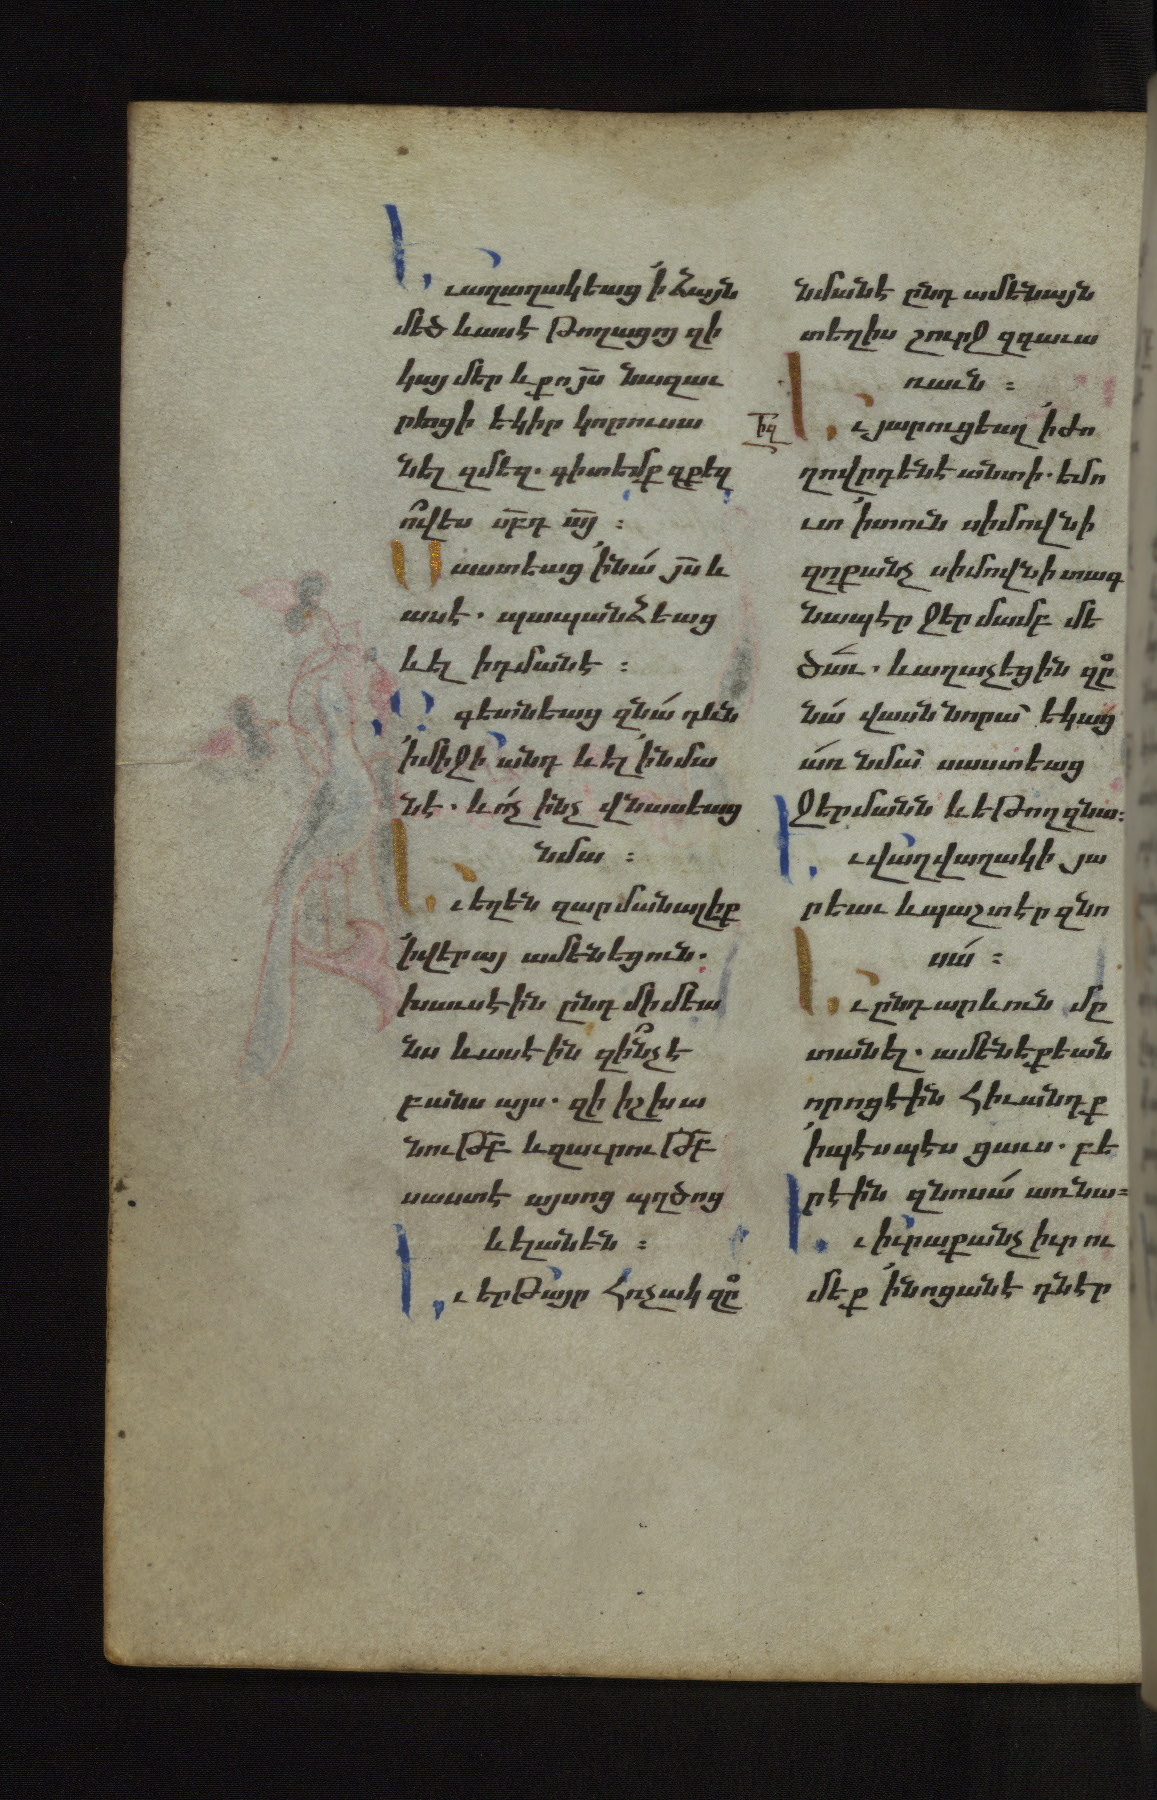 Եւ աղաղակեաց ՛ի ձայն
մեծ և ասէ թողացոյց զի
կայ մեր և քո յս̅ նազաւ
րեացի եկիր կորուսա
նել զմեզ. գիտեմք զքեզ
ո՞վ ես ս̅բ̅դ ա̅յ :
Սաստեաց ՛ի նա յս̅ և
ասէ. պապանձեաց
և ել ի դմանէ :
Զգետնեաց զնա դևն
՛ի միջի անդ և ել ՛ի նմա
նէ. և ոչ ինչ վնասեաց
նմա :
Եւ եղեն զարմանալիք
՛ի վերայ ամենեցուն.
խաւսէին ընդ միմեա
նս և ասէին զի՞նչ է
բանս այս. զի իշխա
նութ̅բ̅ և զաւրութ̅բ̅
սաստէ այսոց պղծոց
և ելանեն :
Եւ երթայր հռչակ զը
նմանէ ընդ ամենայն
տեղիս շուրջ զգաւա
ռաւն :
ի̅զ̅
Եւ յարուցեալ ՛ի ժո
ղովրդենէ անտի. եմո
ւտ ՛ի տուն սիմովնի
զոքանչ սիմովնի տագ
նապէր ջերմամբ մե
ծաւ. և աղաչեցին զը
նա վասն նորա՝ եկաց
առ նմա՝ սաստեաց
ջերմանն և եթող զնա:
Եւ վաղվաղակի յա
րեաւ և պաշտէր զնո
սա :
Եւ ընդ արևուն մը
տանել. ամենեքեան
որոց էին հիւանդք
՛ի պէսպէս ցաւս. բե
րէին զնոսա առ նա:
Եւ իւրաքանչիւր ու
մեք ՛ի նոցանէ դնէր